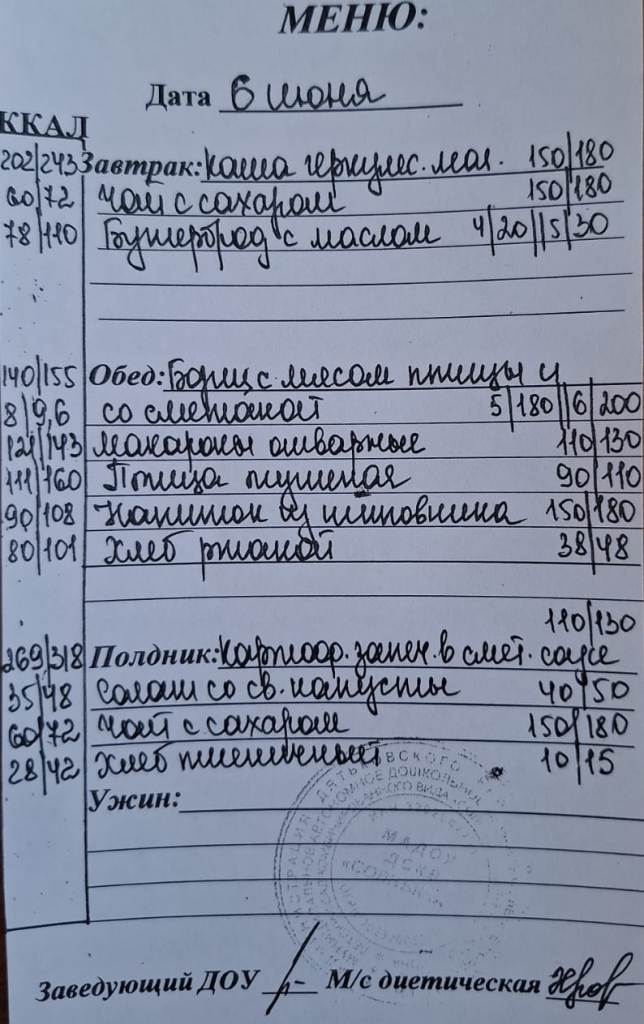 МЕНЮ:
Дата 6 июня
ККАЛ
202/243 Завтрак: Каша геркулес. мол. 150/180
60/72 Чай с сахаром 150/180
78/110 Бутерброд с маслом 4/20//5/30
140/155 Обед: Борщ с мясом птицы и
8/9,6 со сметаной 5/180//6/200
121/143 Макароны отварные 110/130
111/160 Птица тушеная 90/110
90/108 Напиток из шиповника 150/180
80/101 Хлеб ржаной 38/48
110/130
269/318 Полдник: Картоф. запеч. в смет. соусе
35/48 Салат со св. капусты 40/50
60/72 Чай с сахаром 150/180
28/42 Хлеб пшеничный 10/15
Ужин:
Заведующий ДОУ М/с диетическая